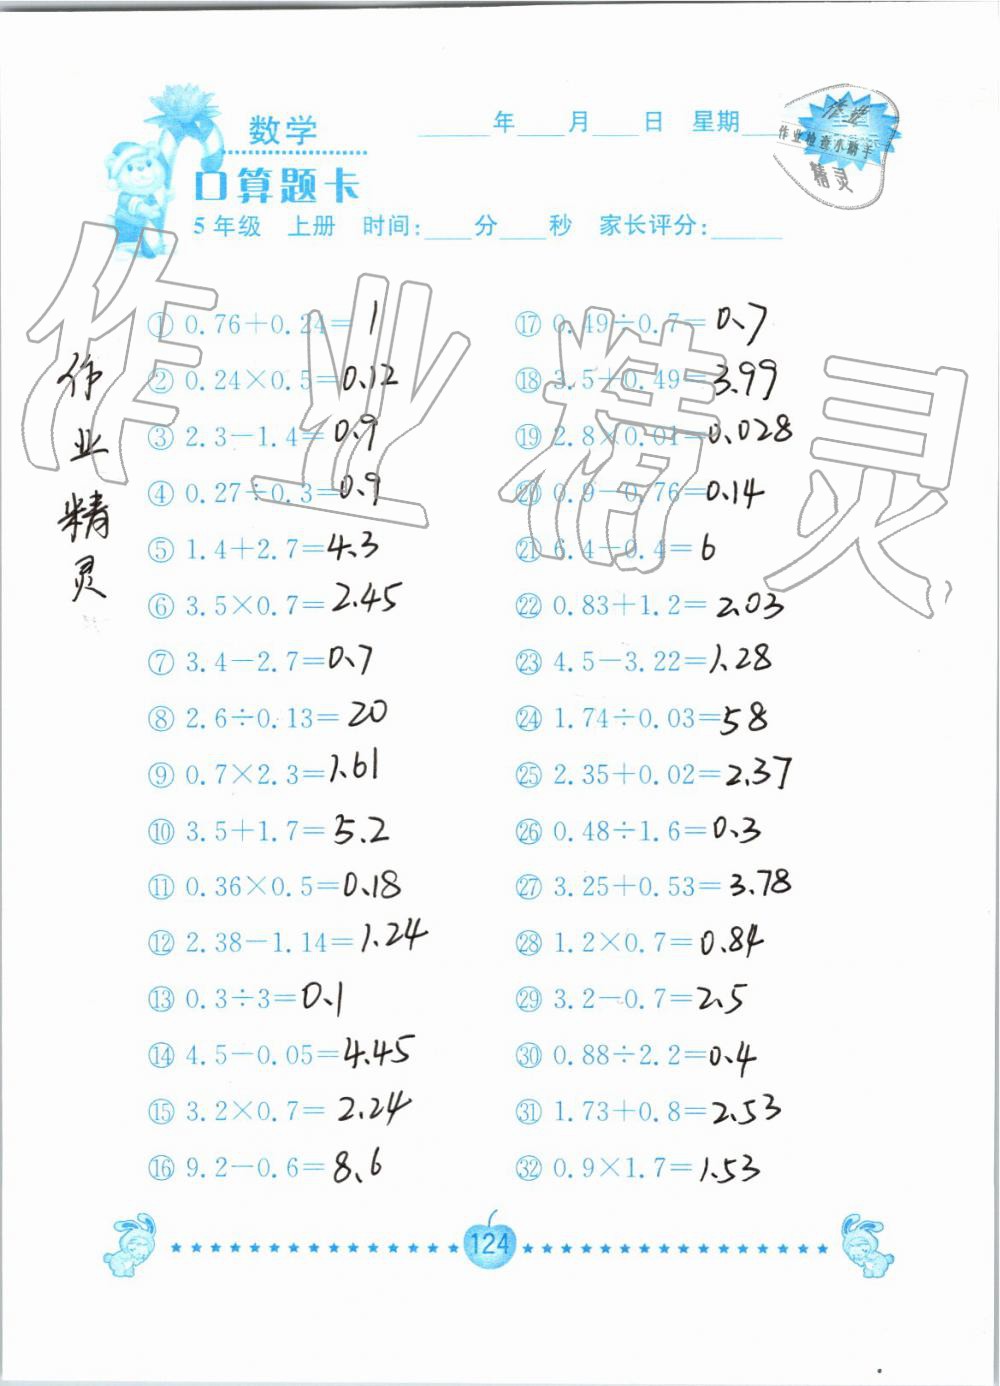 数学
____年___月___日 星期___
作业
作业检查小助手
精灵
口算题卡
5年级 上册 时间:___分___秒 家长评分:____
作业精灵
作业精灵
① 0.76+0.24= 1
② 0.24×0.5=0.12
③ 2.3-1.4= 0.9
④ 0.27÷0.3=0.9
⑤ 1.4+2.7=4.3
⑥ 3.5×0.7=2.45
⑦ 3.4-2.7=0.7
⑧ 2.6÷0.13=20
⑨ 0.7×2.3=1.61
⑩ 3.5+1.7=5.2
⑪ 0.36×0.5=0.18
⑫ 2.38-1.14=1.24
⑬ 0.3÷3=0.1
⑭ 4.5-0.05=4.45
⑮ 3.2×0.7= 2.24
⑯ 9.2-0.6=8.6
⑰ 0.49÷0.7= 0.7
⑱ 3.5+0.49=3.99
⑲ 2.8×0.01=0.028
⑳ 0.9-0.76=0.14
㉑ 6.4-0.4=6
㉒ 0.83+1.2=2.03
㉓ 4.5-3.22=1.28
㉔ 1.74÷0.03=58
㉕ 2.35+0.02=2.37
㉖ 0.48÷1.6=0.3
㉗ 3.25+0.53=3.78
㉘ 1.2×0.7=0.84
㉙ 3.2-0.7=2.5
㉚ 0.88÷2.2=0.4
㉛ 1.73+0.8=2.53
㉜ 0.9×1.7=1.53
124